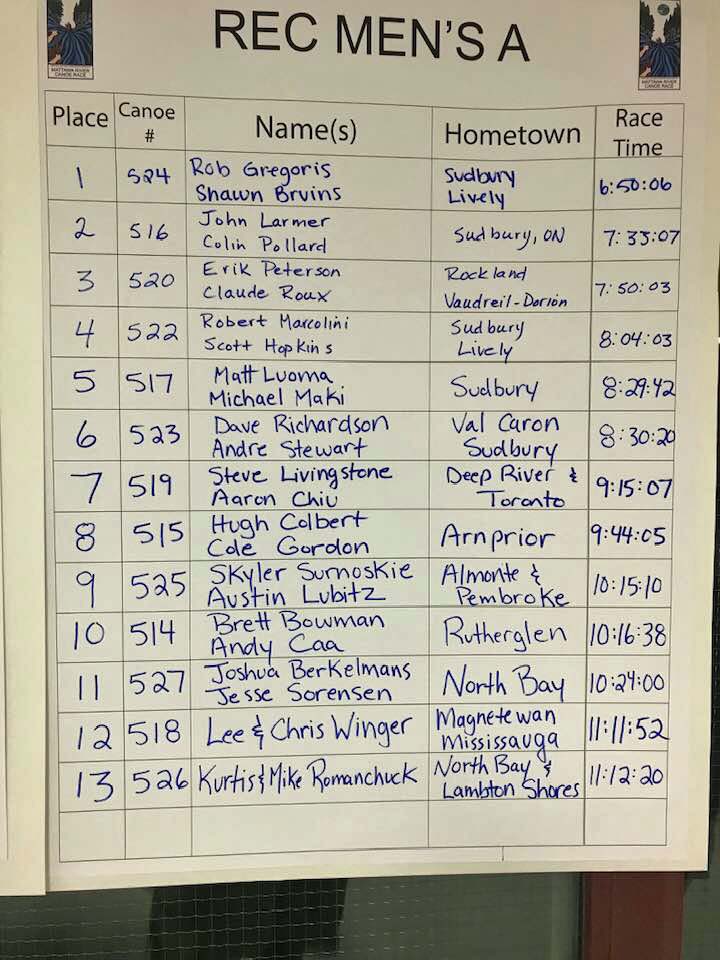 MATTAWA RIVER
CANOE RACE
REC MEN'S A
MATTAWA RIVER
CANOE RACE
Place Canoe # Name(s) Hometown Race Time
1 524 Rob Gregoris Sudbury 6:50:06
Shawn Bruins Lively
2 516 John Larmer Sudbury, ON 7:33:07
Colin Pollard
3 520 Erik Peterson Rockland 7:50:03
Claude Roux Vaudreil-Dorion
4 522 Robert Marcolini Sudbury 8:04:03
Scott Hopkins Lively
5 517 Matt Luoma Sudbury 8:29:42
Michael Maki
6 523 Dave Richardson Val Caron 8:30:20
Andre Stewart Sudbury
7 519 Steve Livingstone Deep River & 9:15:07
Aaron Chiu Toronto
8 515 Hugh Colbert Arnprior 9:44:05
Cole Gordon
9 525 Skyler Surnoskie Almonte & 10:15:10
Austin Lubitz Pembroke
10 514 Brett Bowman Rutherglen 10:16:38
Andy Caa
11 527 Joshua Berkelmans North Bay 10:24:00
Jesse Sorensen
12 518 Lee & Chris Winger Magnetewan 11:11:52
Mississauga
13 526 Kurtis & Mike Romanchuck North Bay & 11:12:20
Lambton Shores